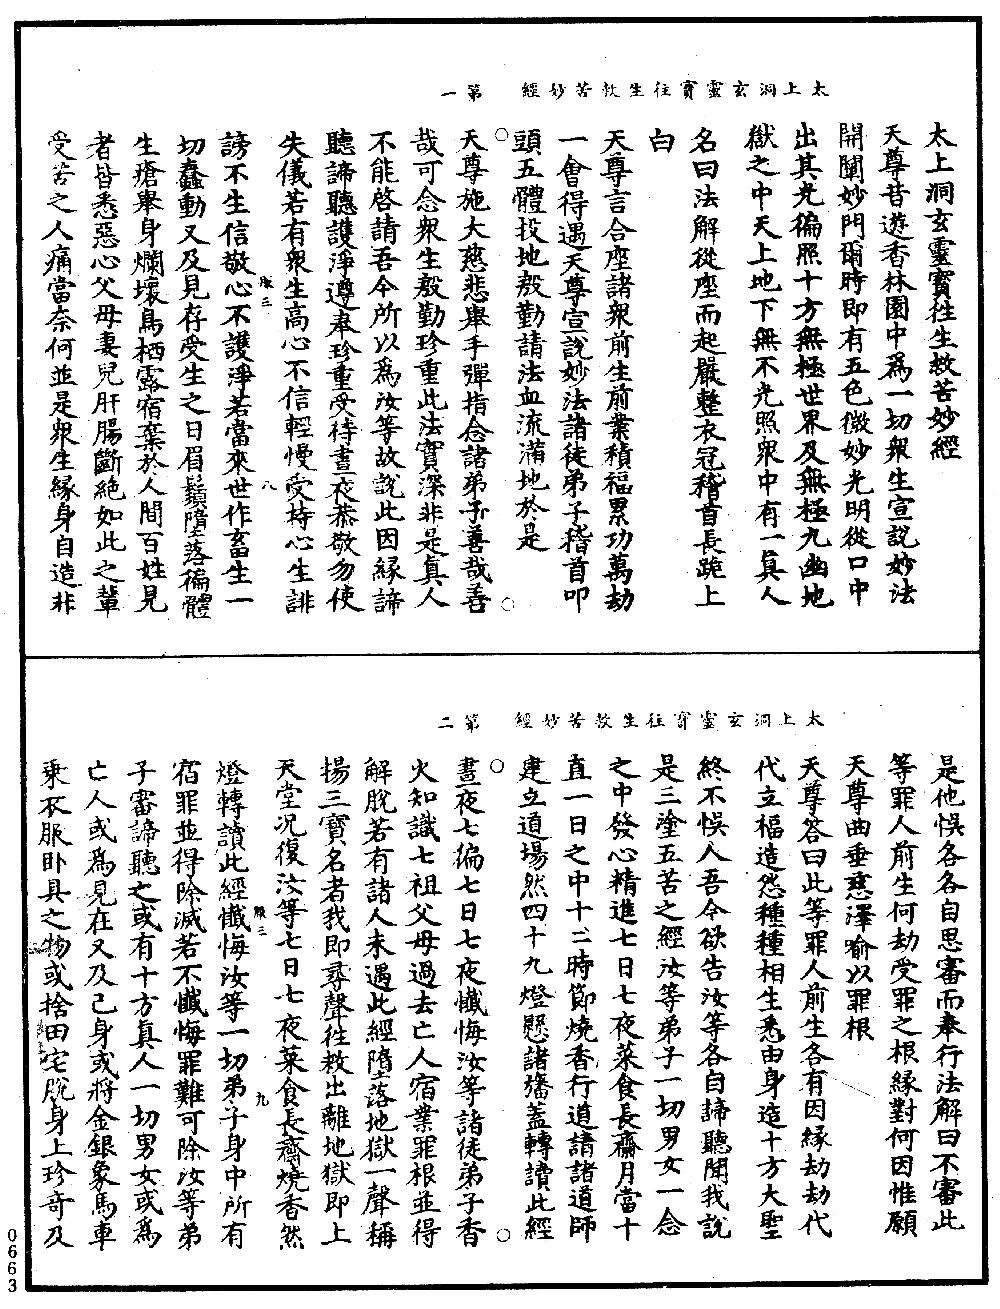 太上洞玄靈寶往生救苦妙經　第一
太上洞玄靈寶往生救苦妙經
天尊昔遊香林園中為一切衆生宣説妙法
開闡妙門爾時即有五色微妙光明從口中
出其光徧照十方無極世界及無極九幽地
獄之中天上地下無不光照衆中有一真人
名曰法解從座而起嚴整衣冠稽首長跪上
白
天尊言合座諸衆前生前業積福累功萬劫
一會得遇天尊宣説妙法諸徒弟子稽首叩
頭五體投地慇勤請法血流滿地於是
天尊施大慈悲舉手彈指念諸弟子善哉善
哉可念衆生慇勤珍重此法寶深非是真人
不能啓請吾今所以為汝等故説此因緣諦
聽諦聽護淨遵奉珍重受待晝夜恭敬勿使
失儀若有衆生高心不信輕慢受持心生誹
服三　八
謗不生信敬心不護淨若當來世作畜生一
切蠢動又及見存受生之日眉鬚墮落徧體
生瘡舉身爛壞鳥栖露宿棄於人間百姓見
者皆悉惡心父母妻兒肝腸斷絶如此之輩
受苦之人痛當奈何並是衆生緣身自造非
太上洞玄靈寶往生救苦妙經　第二
是他悞各各自思審而奉行法解曰不審此
等罪人前生何劫受罪之根緣對何因惟願
天尊曲垂慈澤喻以罪根
天尊答曰此等罪人前生各有因緣劫劫代
代立福造愆種種相生悉由身造十方大聖
終不悞人吾今欲告汝等各自諦聽聞我説
是三塗五苦之經汝等弟子一切男女一念
之中發心精進七日七夜菜食長齋月當十
直一日之中十二時節燒香行道請諸道師
建立道場然四十九燈懸諸旛蓋轉讀此經
晝夜七徧七日七夜懺悔汝等諸徒弟子香
火知識七祖父母過去亡人宿業罪根並得
解脱若有諸人未遇此經墮落地獄一聲稱
揚三寶名者我即尋聲往救出離地獄即上
天堂况復汝等七日七夜菜食長齋燒香然
服三　九
燈轉讀此經懺悔汝等一切弟子身中所有
宿罪並得除滅若不懺悔罪難可除汝等弟
子審諦聽之或有十方真人一切男女或為
亡人或為見在又及己身或將金銀象馬車
乗衣服卧具之物或捨田宅脱身上珍奇及
0663